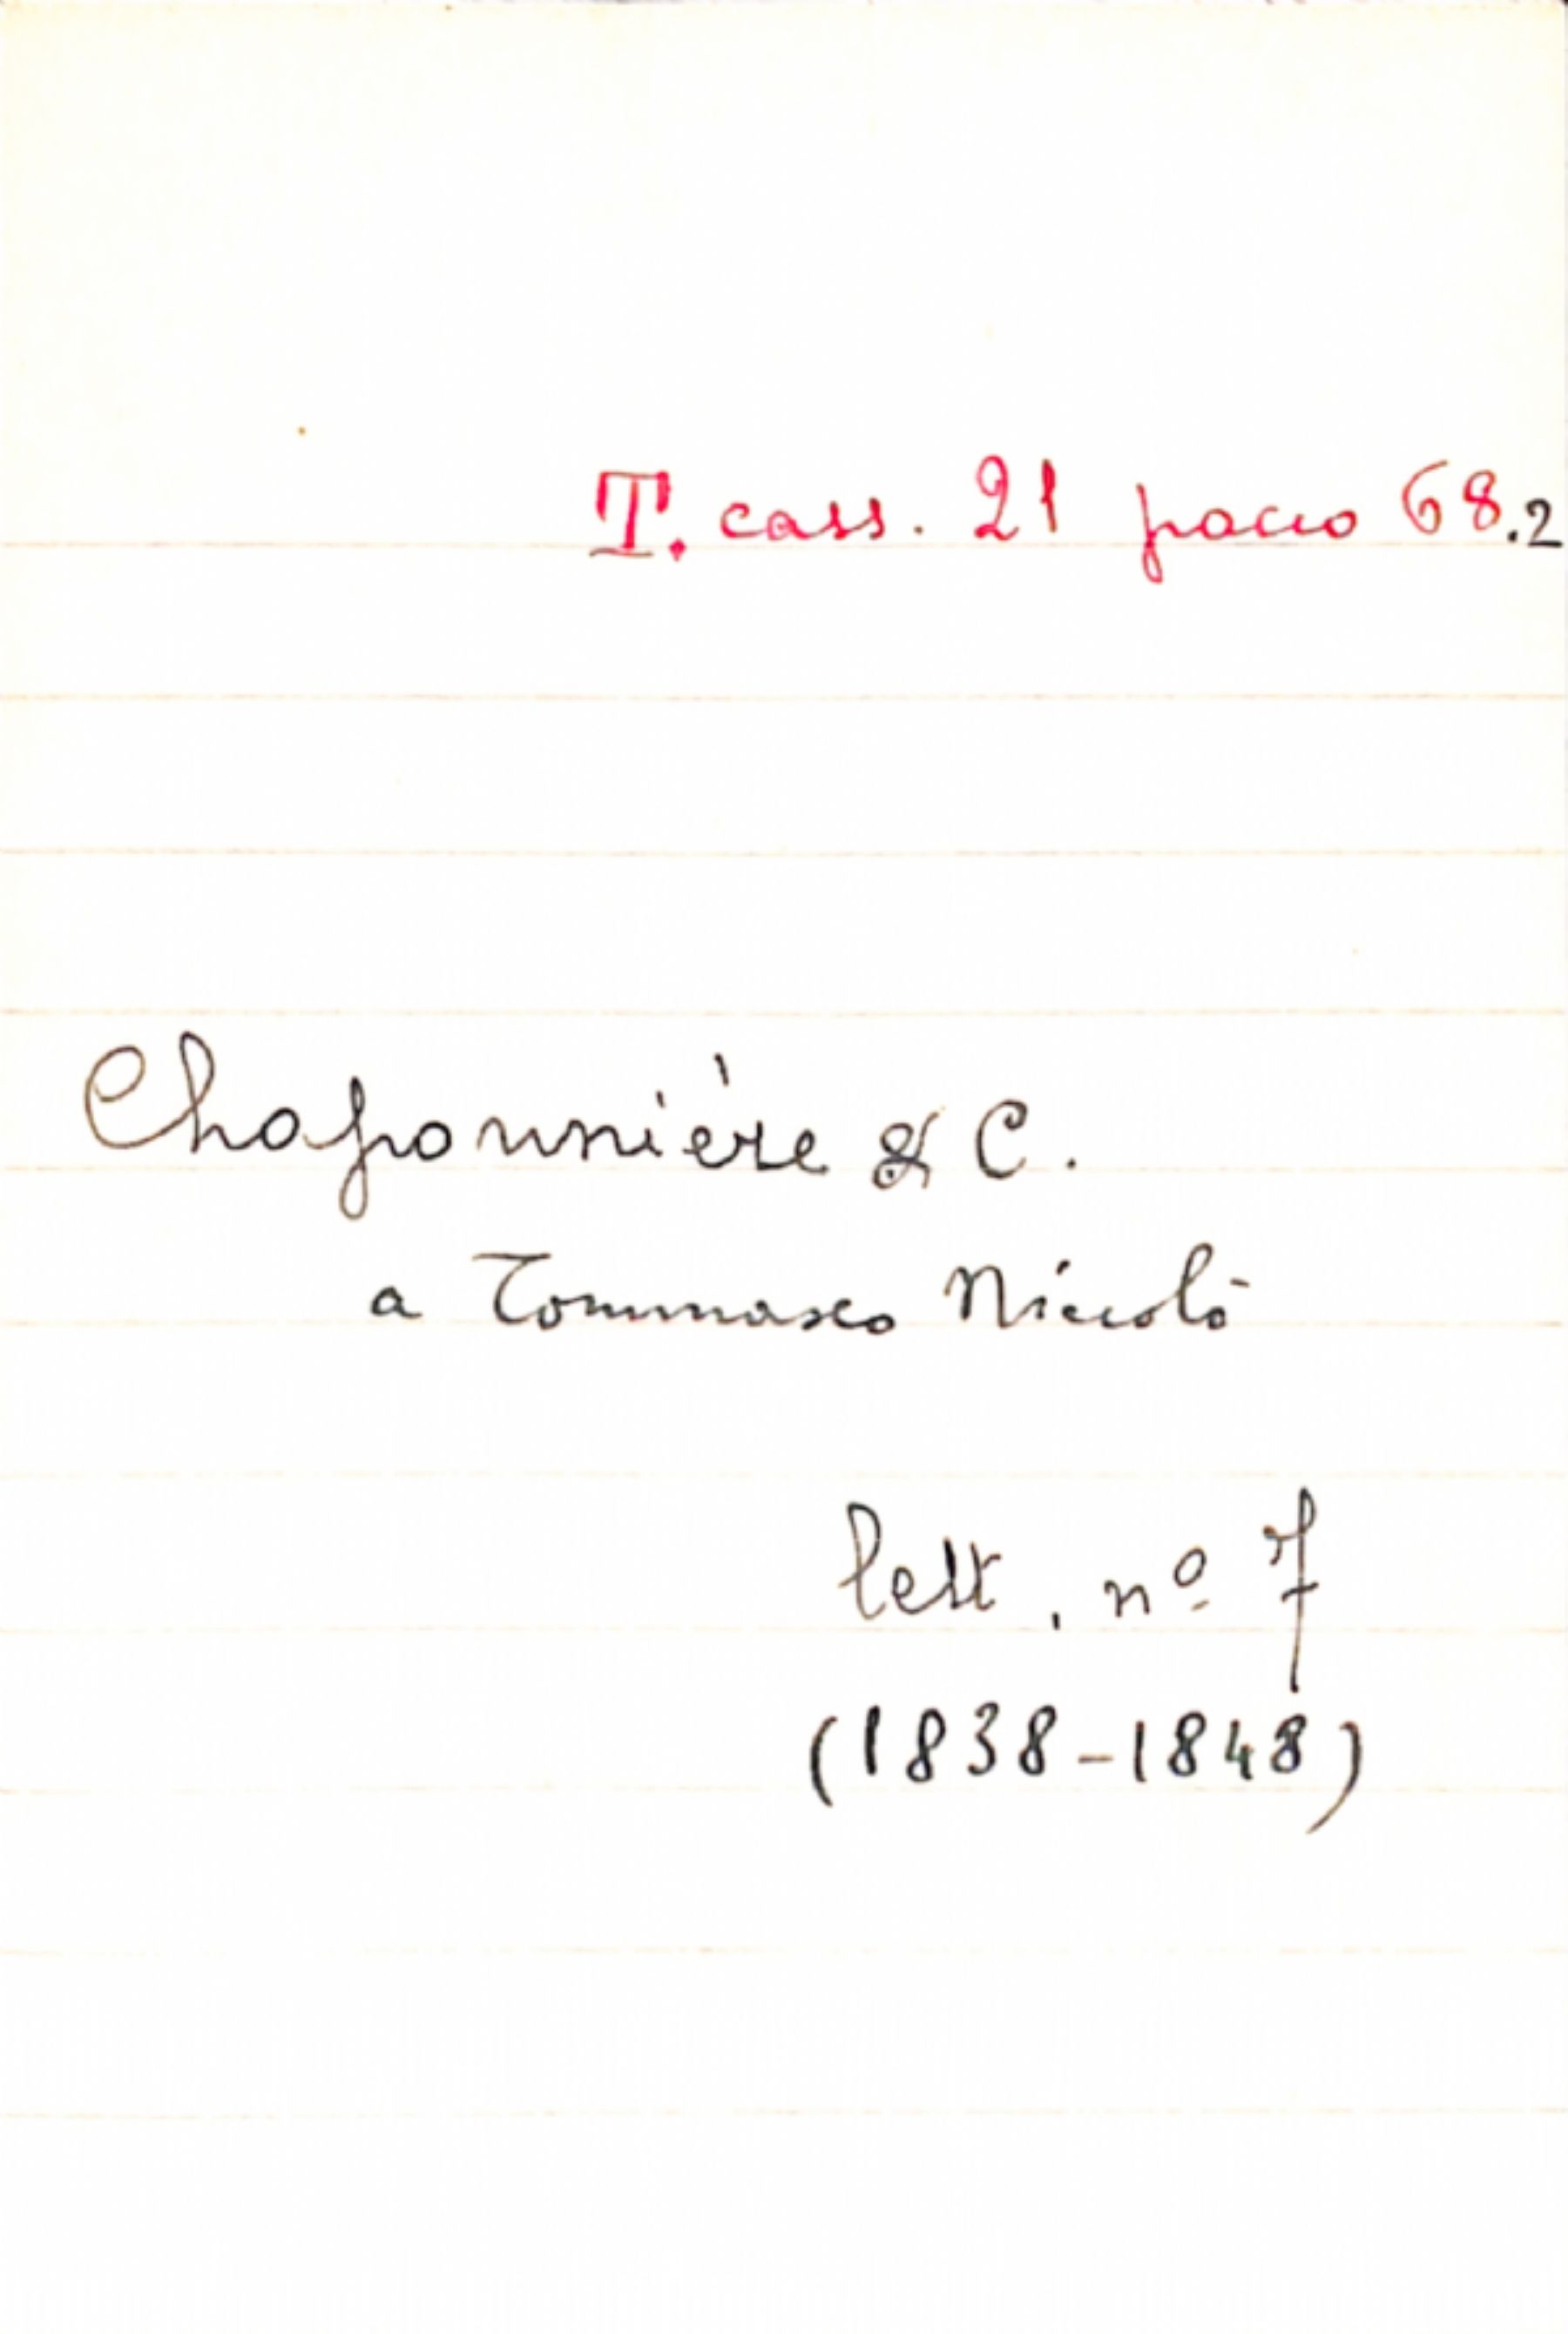 T. cass. 21 pacco 68.2
Chaponnière & C.
a Tommaseo Niccolò
lett. nº 7
(1838-1848)